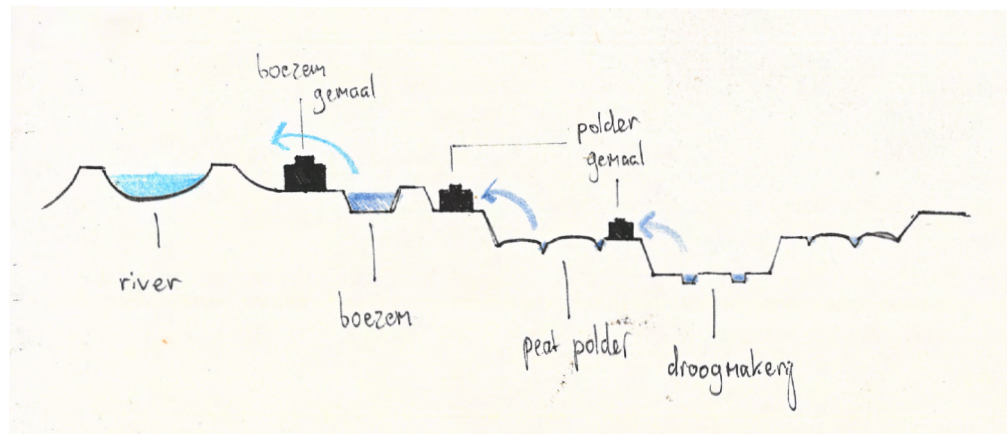 boezem
gemaal
polder
gemaal
river
boezem
peat polder
droogmakerij